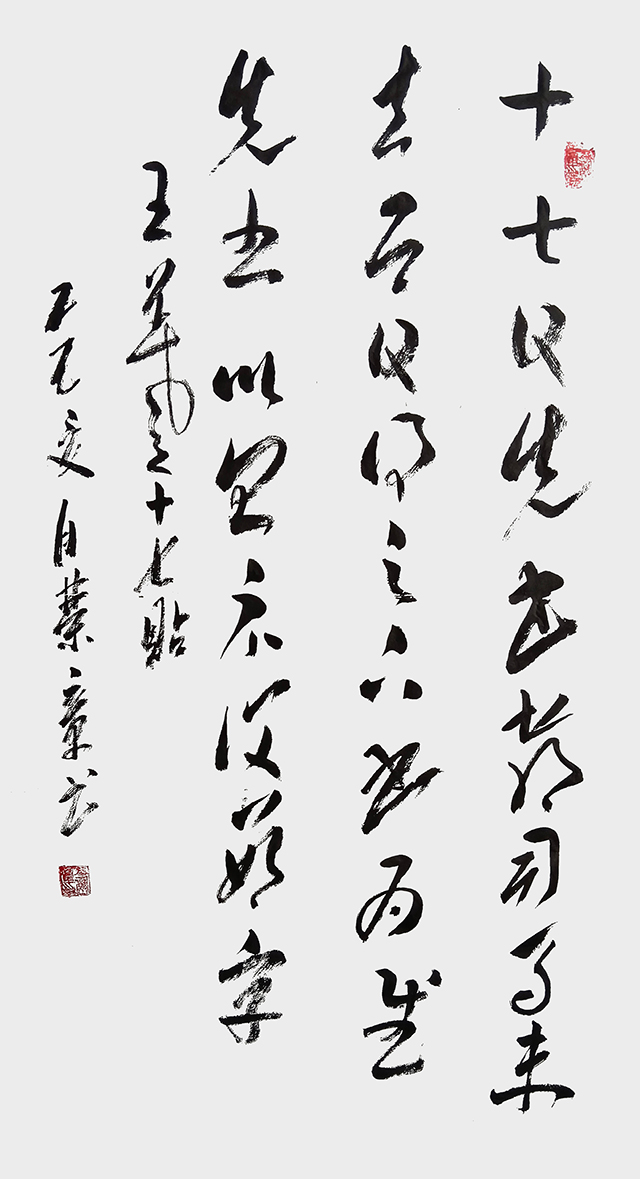 十七日先書郗司馬未
去即日得足下書為慰
先書以具示復數字
王羲之十七貼
章書